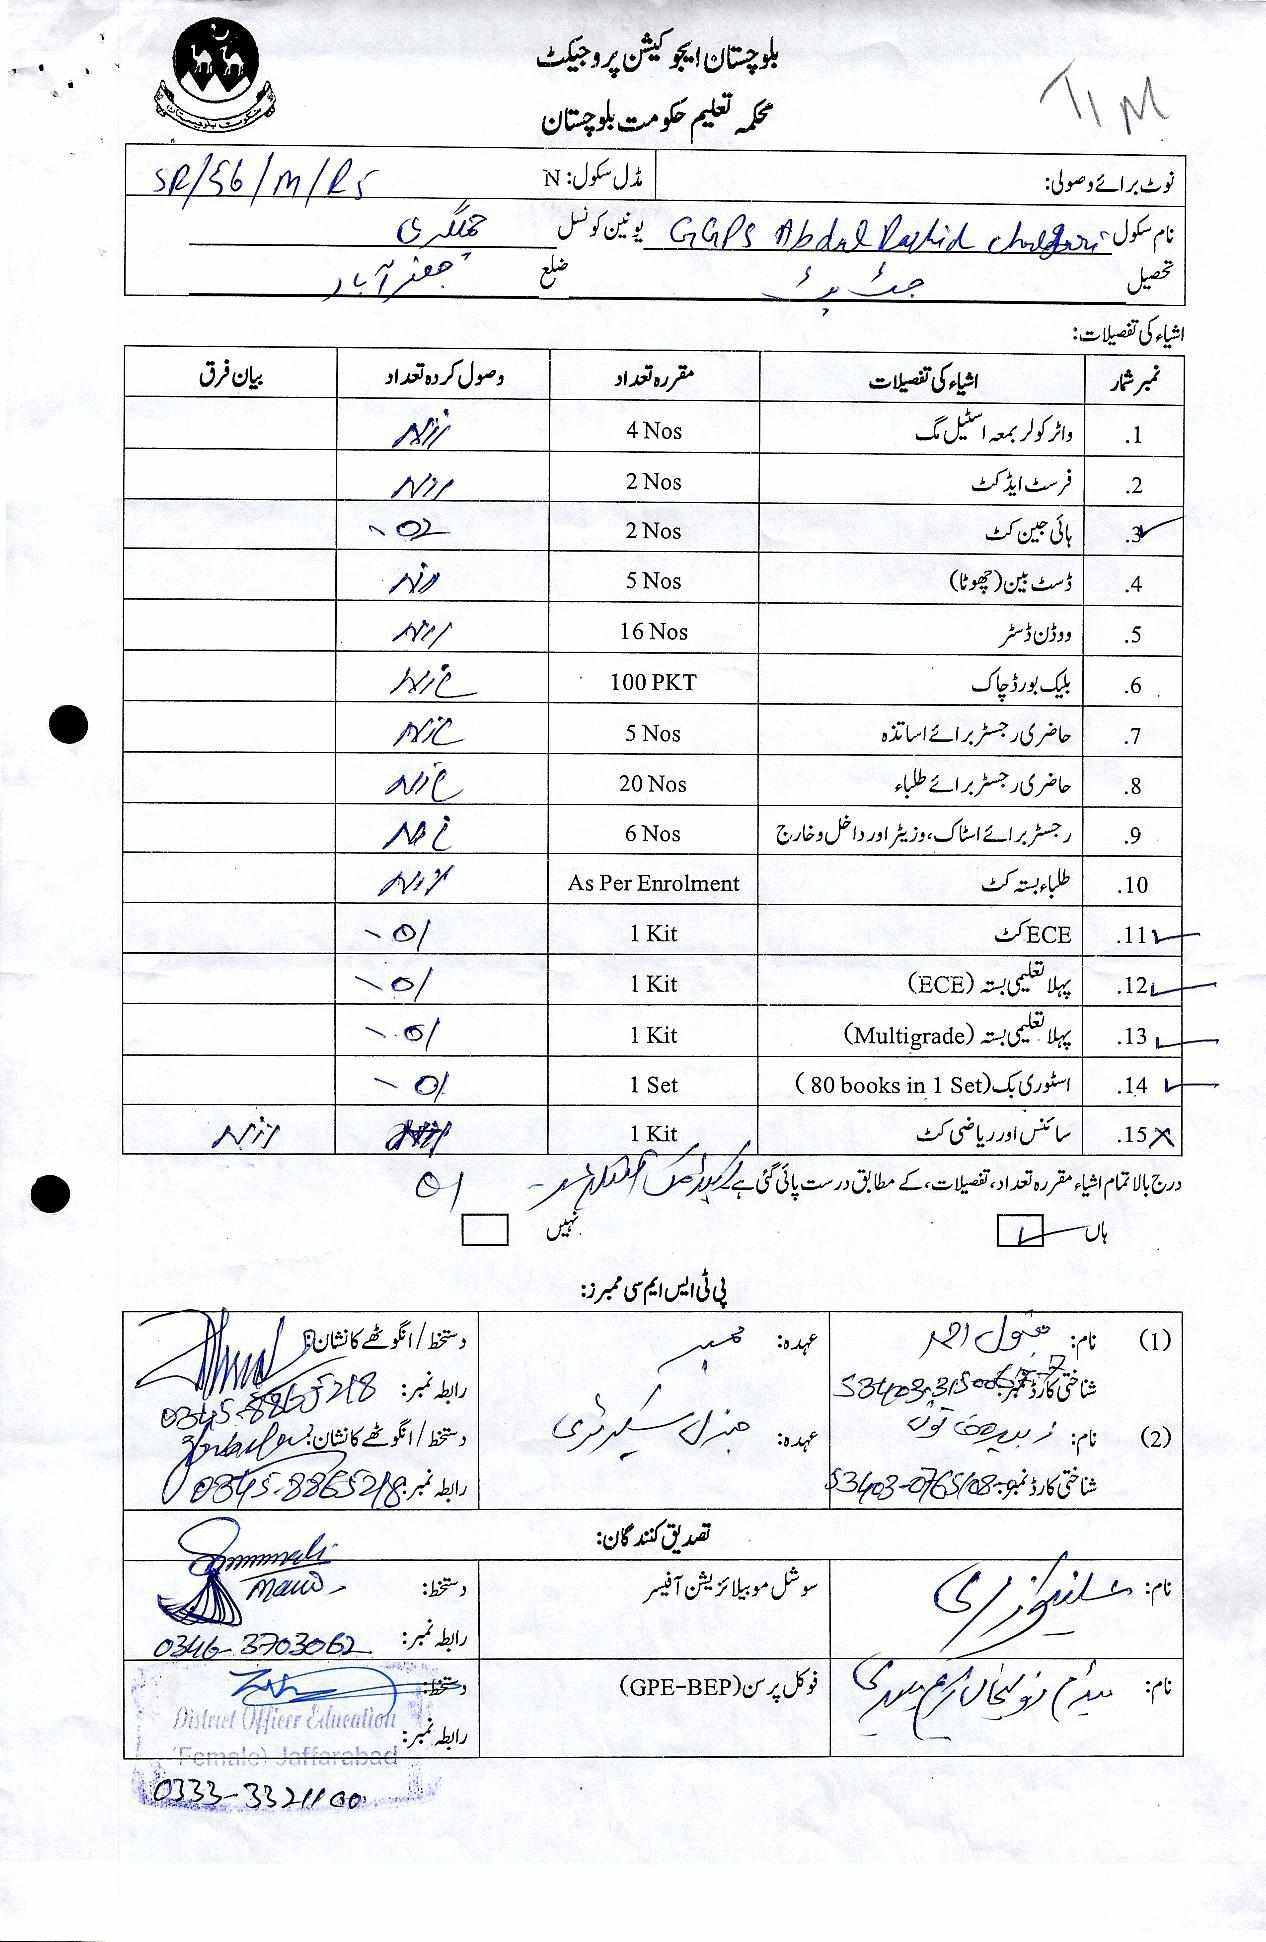 بلوچستان ایجوکیشن پروجیکٹ
محکمہ تعلیم حکومت بلوچستان
TIM
نوٹ برائے وصولی: مڈل سکول: N SR/56/M/RS
نام سکول GGPS Abdul Rashid یونین کونسل
تحصیل ضلع جعفرآباد
اشیاء کی تفصیلات:
نمبر شمار اشیاء کی تفصیلات مقررہ تعداد وصول کردہ تعداد بیان فرق
1. واٹر کولر بمعہ اسٹیل مگ 4 Nos Nil
2. فرسٹ ایڈ کٹ 2 Nos Nil
3. ہائی جین کٹ 2 Nos 02
4. ڈسٹ بین (چھوٹا) 5 Nos Nil
5. ووڈن ڈسٹر 16 Nos Nil
6. بلیک بورڈ چاک 100 PKT Nil
7. حاضری رجسٹر برائے اساتذہ 5 Nos Nil
8. حاضری رجسٹر برائے طلباء 20 Nos Nil
9. رجسٹر برائے اسٹاک، وزیٹر اور داخل و خارج 6 Nos Nil
10. طلباء بستہ کٹ As Per Enrolment Nil
11. ECE کٹ 1 Kit 01
12. پہلا تعلیمی بستہ (ECE) 1 Kit 01
13. پہلا تعلیمی بستہ (Multigrade) 1 Kit 01
14. اسٹوری بک (80 books in 1 Set) 1 Set 01
15. سائنس اور ریاضی کٹ 1 Kit Nil Nil
درج بالا تمام اشیاء مقررہ تعداد، تفصیلات، کے مطابق درست پائی گئی ہے 01
ہاں نہیں
پی ٹی ایس ایم سی ممبرز:
(1) نام: عہدہ: ممبر دستخط/انگوٹھے کا نشان:
شناختی کارڈ نمبر: رابطہ نمبر: 0345-8865218
(2) نام: عہدہ: جنرل سیکرٹری دستخط/انگوٹھے کا نشان:
شناختی کارڈ نمبر: رابطہ نمبر: 0345-8865218
تصدیق کنندگان:
نام: سوشل موبیلائزیشن آفیسر دستخط:
رابطہ نمبر: 0346-3703062
نام: فوکل پرسن (GPE-BEP) دستخط:
District Officer Education
رابطہ نمبر:
(Female) Jaffarabad
0333-3321100